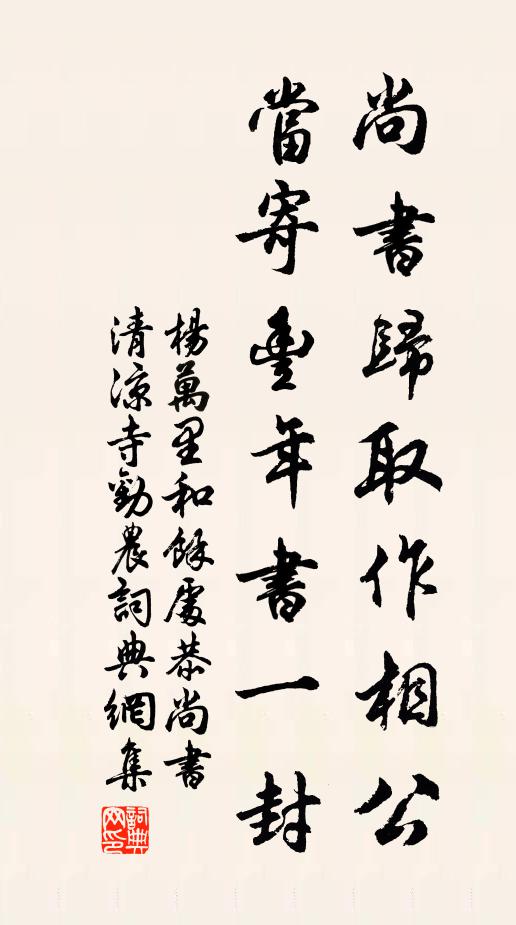 尚書歸取作相公
當寄豐年書一封
楊萬里和餘處恭尚書
清涼寺勸農詞典網集
詞典網印